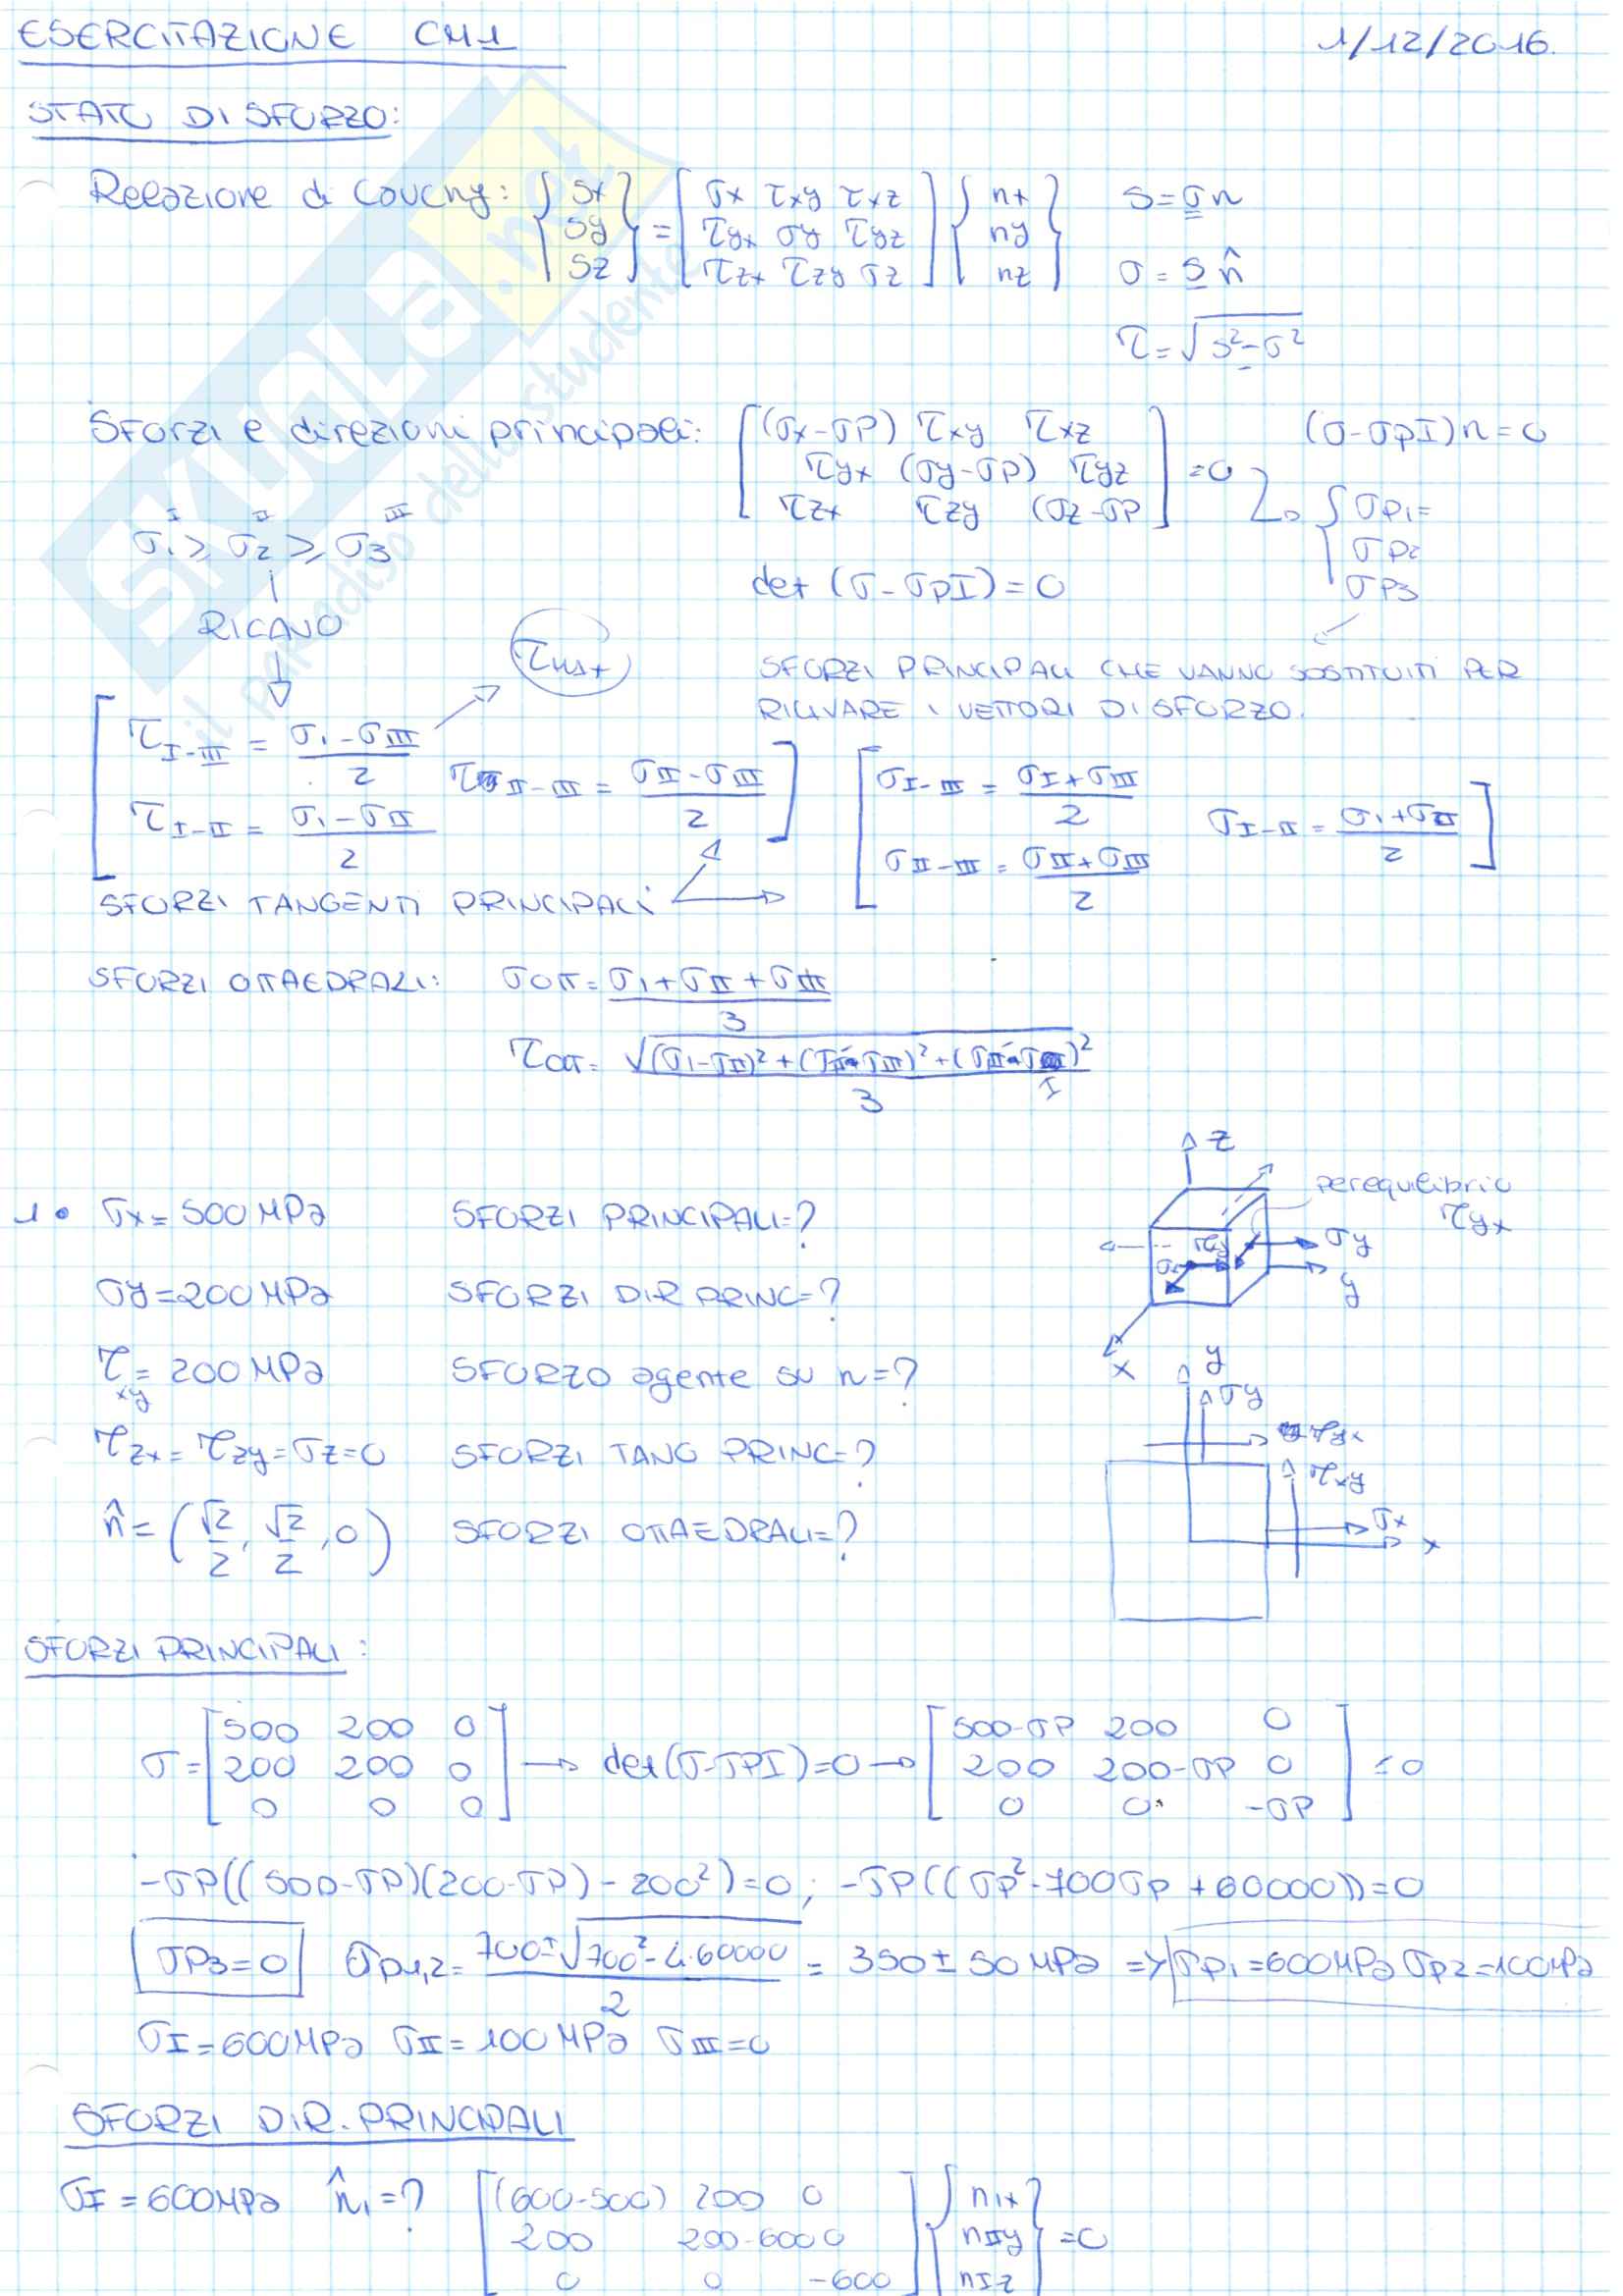 ESERCITAZIONE CM1 1/12/2016.
STATO DI SFORZO:
Relazione di Couchy: { sx sy sz } = [ σx τxy τxz ; τyx σy τyz ; τzx τzy σz ] { nx ny nz } s = σ n
σ = s n̂
τ = √(s²-σ²)
Sforzi e direzioni principali: [ (σx-σP) τxy τxz ; τyx (σy-σP) τyz ; τzx τzy (σz-σP ] = 0 (σ-σpI)n = 0
{ σP1= σP2 σP3
I II III
σ1 ≥ σ2 ≥ σ3
det (σ-σpI) = 0
RICAVO
SFORZI PRINCIPALI CHE VANNO SOSTITUITI PER
RICAVARE I VETTORI DI SFORZO.
τI-III = (σ1-σIII)/2 τII-III = (σII-σIII)/2 σI-III = (σI+σIII)/2 σI-II = (σ1+σII)/2
τI-II = (σ1-σII)/2 σII-III = (σII+σIII)/2
SFORZI TANGENTI PRINCIPALI
SFORZI OTTAEDRALI: σOTT = (σ1+σII+σIII)/3
τOTT = √((σ1-σII)²+(σII-σIII)²+(σIII-σI)²)/3
z
1• σx = 500 MPa SFORZI PRINCIPALI=? per equilibrio
τyx
σy
y
σy = 200 MPa SFORZI DIR PRINC=?
x
τxy = 200 MPa SFORZO agente su n=?
y
σy
τzx = τzy = σz = 0 SFORZI TANG PRINC=?
τyx
τxy
n̂ = (√2/2, √2/2, 0) SFORZI OTTAEDRALI=?
σx
x
SFORZI PRINCIPALI:
σ = [ 500 200 0 ; 200 200 0 ; 0 0 0 ] → det(σ-σPI)=0 → [ 500-σP 200 0 ; 200 200-σP 0 ; 0 0 -σP ] = 0
-σP((500-σP)(200-σP)-200²)=0; -σP((σP²-700σp+60000))=0
σP3=0 σP1,2 = (700±√(700²-4·60000))/2 = 350±50 MPa => σP1=600MPa σP2=100MPa
σI=600MPa σII=100MPa σIII=0
SFORZI DIR. PRINCIPALI
σI = 600MPa n̂1=? [ (600-500) 200 0 ; 200 200-600 0 ; 0 0 -600 ] { nIx nIy nIz } = 0
SKUOLA.net
il paradiso dello studente